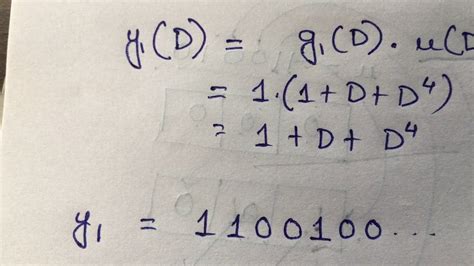 y₁(D) = g₁(D) · u(D
= 1·(1+D+D⁴)
= 1 + D + D⁴
y₁ = 1100100...